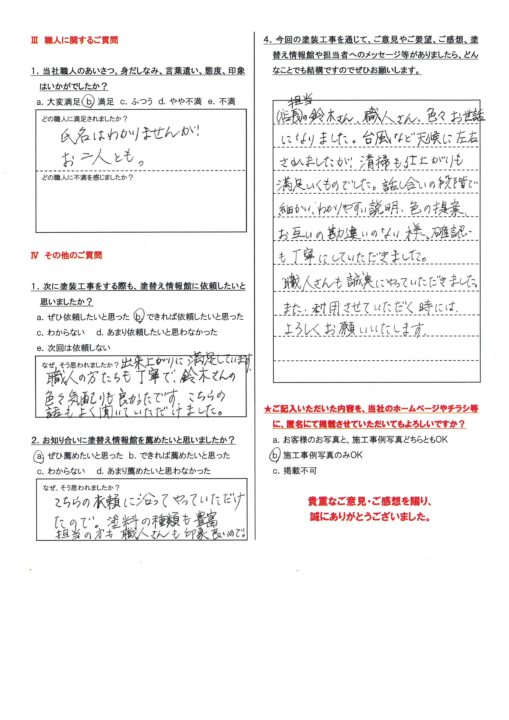 Ⅲ 職人に関するご質問
1. 当社職人のあいさつ、身だしなみ、言葉遣い、態度、印象
はいかがでしたか？
a. 大変満足 b. 満足 c. ふつう d. やや不満 e. 不満
どの職人に満足されましたか？
氏名はわかりませんが!
お二人とも。
どの職人に不満を感じましたか？
Ⅳ その他のご質問
1. 次に塗装工事をする際も、塗替え情報館に依頼したいと
思いましたか？
a. ぜひ依頼したいと思った b. できれば依頼したいと思った
c. わからない d. あまり依頼したいと思わなかった
e. 次回は依頼しない
なぜ、そう思われましたか？ 出来上がりに満足しています。
職人の方たちも丁寧で、鈴木さんの
色々気配りも良かったです。こちらの
話もよく聞いていただけました。
2. お知り合いに塗替え情報館を薦めたいと思いましたか？
a. ぜひ薦めたいと思った b. できれば薦めたいと思った
c. わからない d. あまり薦めたいと思わなかった
なぜ、そう思われましたか？
こちらの依頼に沿ってやっていただけ
たので。塗料の種類も豊富
担当の方も職人さんも印象良いので。
4. 今回の塗装工事を通じて、ご意見やご要望、ご感想、塗
替え情報館や担当者へのメッセージ等がありましたら、どん
なことでも結構ですのでぜひお願いします。
担当
(店長)の鈴木さん、職人さん、色々お世話
になりました。台風など天候に左右
されましたが、清掃も仕上がりも
満足いくものでした。話し合いの段階で
細かい、わかりやすい説明、色の提案、
お互いの勘違いのない様、確認
も丁寧にしていただきました。
職人さんも誠実にやっていただきました。
また、利用させていただく時には、
よろしくお願いいたします。
★ご記入いただいた内容を、当社のホームページやチラシ等
に、匿名にて掲載させていただいてもよろしいですか？
a. お客様のお写真と、施工事例写真どちらともOK
b. 施工事例写真のみOK
c. 掲載不可
貴重なご意見・ご感想を賜り、
誠にありがとうございました。